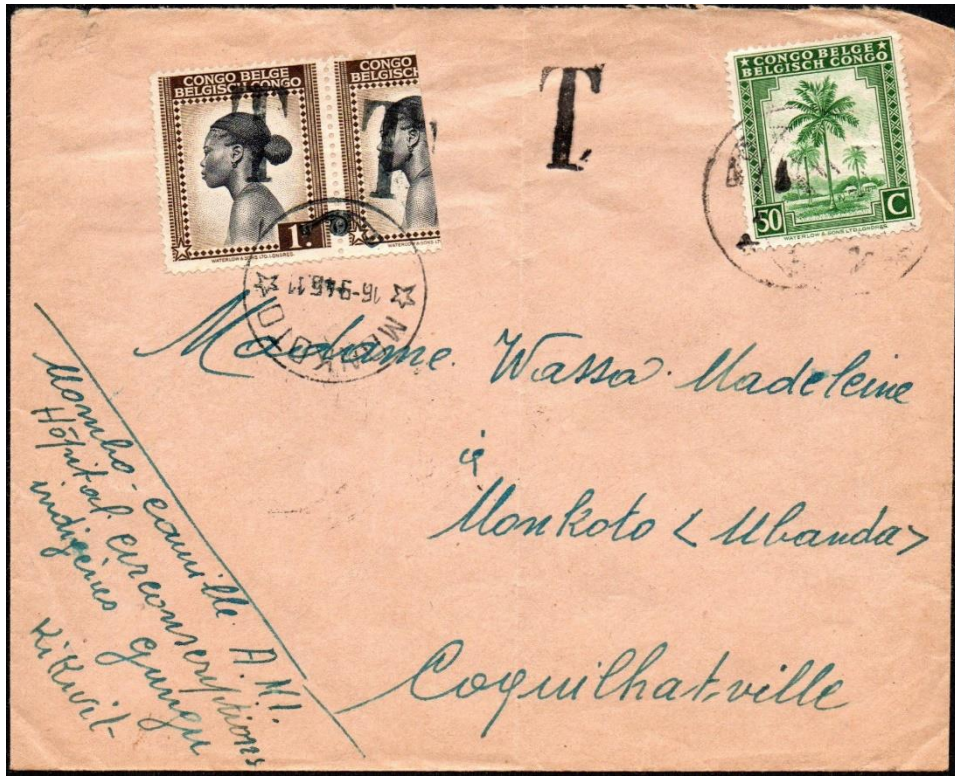 CONGO BELGE
BELGISCH CONGO
1.
WATERLOW & SONS LTD. LONDRES.
T
CONGO
BELGISCH
T
T
CONGO BELGE
BELGISCH CONGO
50 C
WATERLOW & SONS LTD. LONDRES.
16-9-45 11
MONKOTO
Madame Wassa Madeleine
à
Monkoto <Mbanda>
Coquilhatville
Mombo-camille A.M.I.
Hôpital circonscriptions
indigènes gungu
Kikwit-